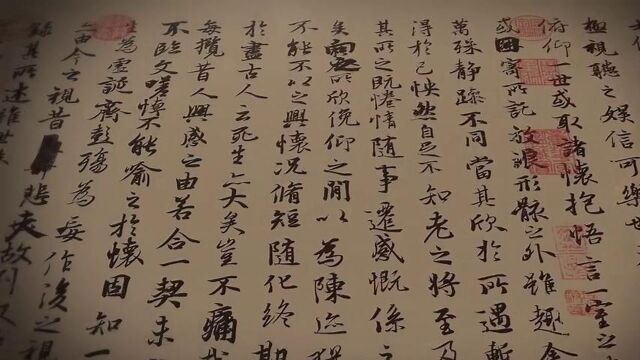 極視聽之娛信可樂也
俯仰一世或取諸懷抱悟言一室之
或因寄所託放浪形骸之外雖趣舍
萬殊靜躁不同當其欣於所遇暫
得於己怏然自足不知老之將至及
其所之既惓情隨事遷感慨係之
矣向之所欣俛仰之間以為陳迹猶
不能不以之興懷況脩短隨化終期
於盡古人云死生亦大矣豈不痛哉
每攬昔人興感之由若合一契未
不臨文嗟悼不能喻之於懷固知一
生為虛誕齊彭殤為妄作後之視
亦由今之視昔悲夫故列
錄其所述雖世